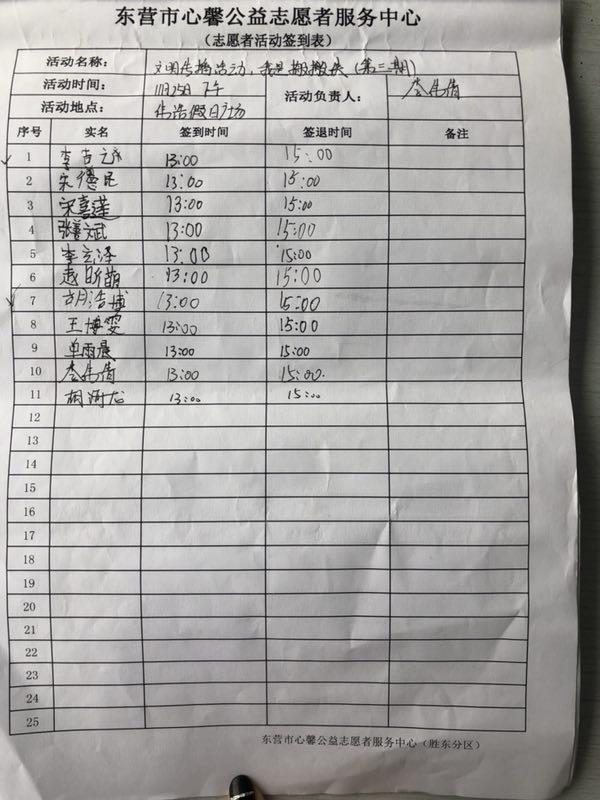 东营市心馨公益志愿者服务中心
（志愿者活动签到表）
活动名称： 文明传播活动，我是搬搬侠（第二期）
活动时间： 11月25日 下午 活动负责人： 李伟倩
活动地点： 伟浩假日广场
序号 实名 签到时间 签退时间 备注
1 李吉 13:00 15:00
2 宋德民 13:00 15:00
3 宋喜莲 13:00 15:00
4 张喜斌 13:00 15:00
5 李立泽 13:00 15:00
6 赵昕萌 13:00 15:00
7 胡浩博 13:00 15:00
8 王博雯 13:00 15:00
9 单雨晨 13:00 15:00
10 李伟倩 13:00 15:00.
11 胡 13:00 15:00
12
13
14
15
16
17
18
19
20
21
22
23
24
25
东营市心馨公益志愿者服务中心（胜东分区）